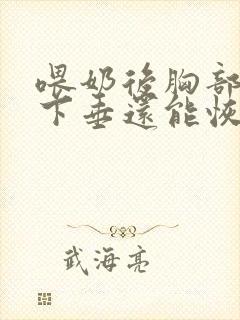 喂奶後胸部
下垂還能恢
武海亮